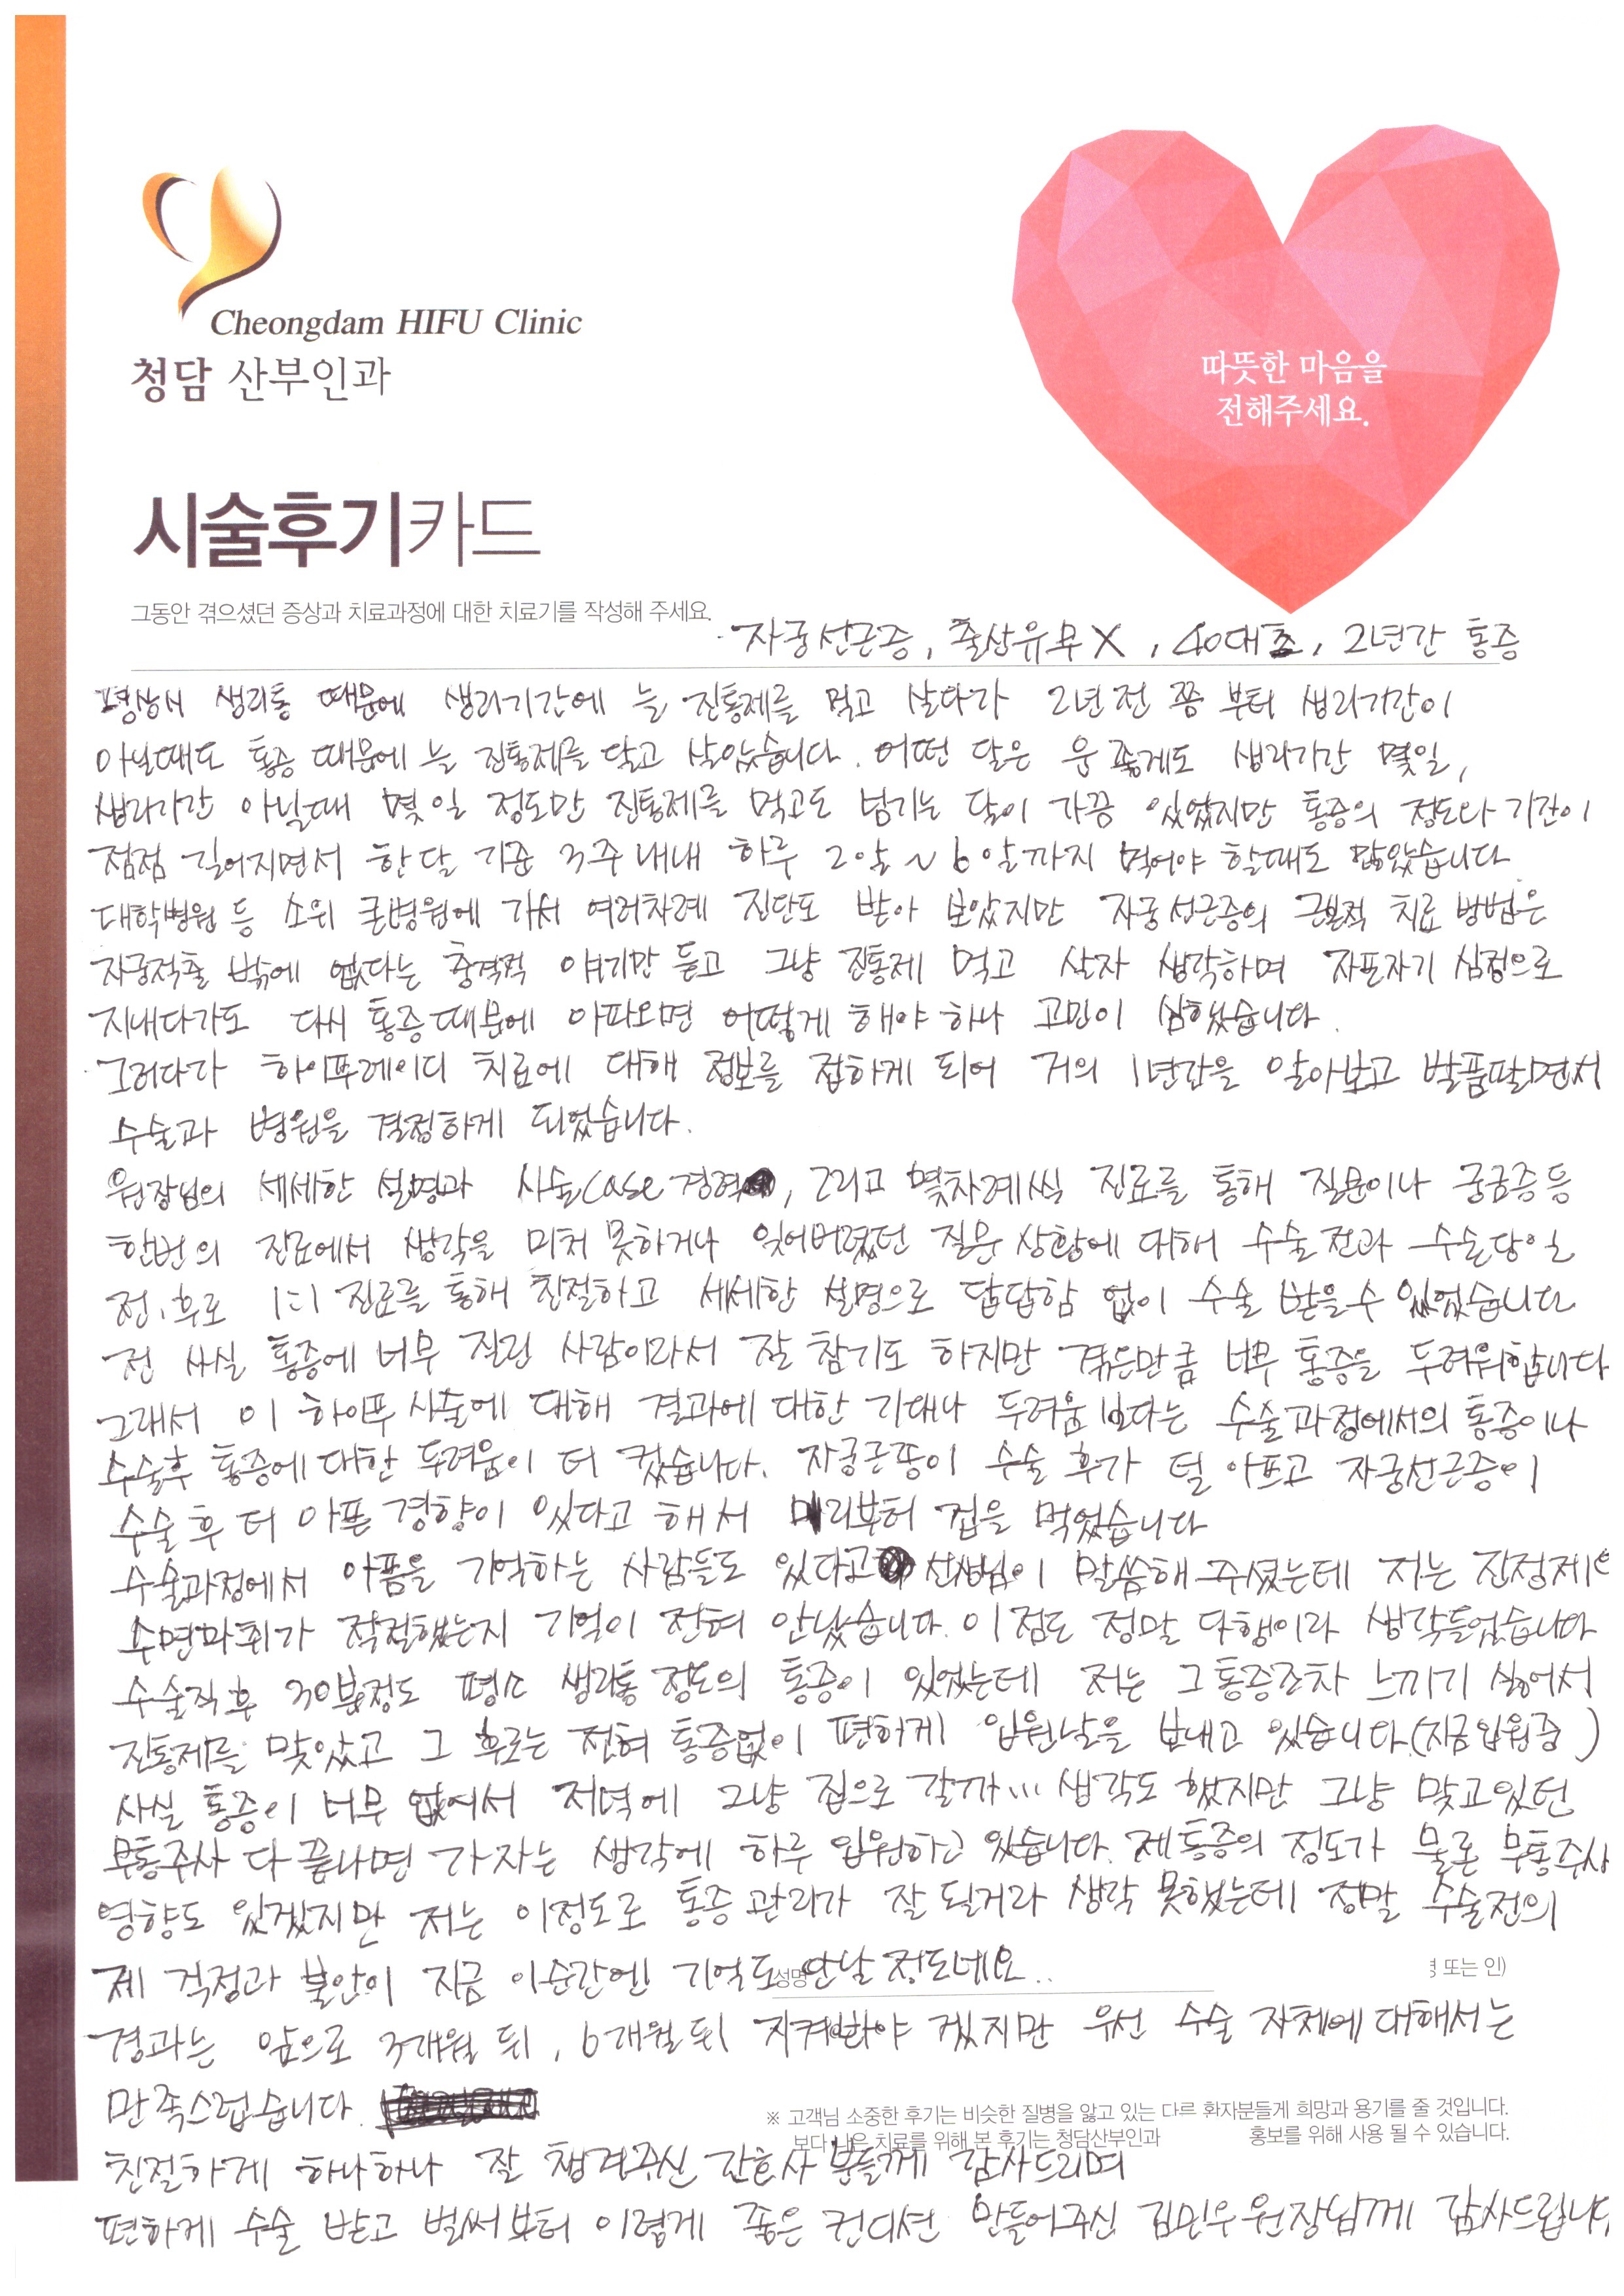 Cheongdam HIFU Clinic
청담 산부인과
따뜻한 마음을
전해주세요.
시술후기카드
그동안 겪으셨던 증상과 치료과정에 대한 치료기를 작성해 주세요.
자궁선근증, 출산유무X, 40대초, 2년간 통증
평상시 생리통 때문에 생리기간에 늘 진통제를 먹고 살다가 2년전 쯤 부터 생리기간이
아닐때도 통증 때문에 늘 진통제를 달고 살았습니다. 어떤 달은 운 좋게도 생리기간 몇일,
생리기간 아닐때 몇 일 정도만 진통제를 먹고도 넘기는 달이 가끔 있었지만 통증의 정도나 기간이
점점 길어지면서 한달 기준 3주 내내 하루 2알~6알까지 먹어야 할때도 많았습니다
대학병원 등 소위 큰병원에 가서 여러차례 진단도 받아 보았지만 자궁선근증의 근본적 치료 방법은
자궁적출 밖에 없다는 충격적 얘기만 듣고 그냥 진통제 먹고 살자 생각하며 자포자기 심정으로
지내다가도 다시 통증때문에 아파오면 어떻게 해야 하나 고민이 심했습니다.
그러다가 하이푸레이디 치료에 대해 정보를 접하게 되어 거의 1년간을 알아보고 발품팔면서
수술과 병원을 결정하게 되었습니다.
원장님의 세세한 설명과 시술case 경력, 그리고 몇차례씩 진료를 통해 질문이나 궁금증등
한번의 진료에서 생각을 미처 못하거나 잊어버렸던 질문 상황에 대해 수술 전과 수술당일
전.후로 1:1 진료를 통해 친절하고 세세한 설명으로 답답함 없이 수술 받을수 있었습니다
전 사실 통증에 너무 질린 사람이라서 잘 참기도 하지만 겪은만큼 너무 통증을 두려워합니다
그래서 이 하이푸 시술에 대해 결과에 대한 기대나 두려움 보다는 수술과정에서의 통증이나
수술후 통증에 대한 두려움이 더 컸습니다. 자궁근종이 수술 후가 덜 아프고 자궁선근증이
수술 후 더 아픈 경향이 있다고 해서 미리부터 겁을 먹었습니다
수술과정에서 아픔을 기억하는 사람들도 있다고 선생님이 말씀해 주셨는데 저는 진정제
수면마취가 적절했는지 기억이 전혀 안났습니다. 이점도 정말 다행이라 생각들었습니다
수술직후 30분정도 평소 생리통 정도의 통증이 있었는데 저는 그 통증조차 느끼기 싫어서
진통제를 맞았고 그 후로는 전혀 통증없이 편하게 입원날을 보내고 있습니다.(지금입원중)
사실 통증이 너무 없어서 저녁에 그냥 집으로 갈까... 생각도 했지만 그냥 맞고있던
무통주사 다 끝나면 가자는 생각에 하루 입원하고 있습니다. 제 통증의 정도가 물론 무통주사
영향도 있겠지만 저는 이정도로 통증 관리가 잘 될거라 생각 못했는데 정말 수술전의
제 걱정과 불안이 지금 이순간엔 기억도 안날 정도네요..
성명
또는 인)
경과는 앞으로 3개월 뒤, 6개월 뒤 지켜봐야 겠지만 우선 수술 자체에 대해서는
만족스럽습니다.
※ 고객님 소중한 후기는 비슷한 질병을 앓고 있는 다른 환자분들게 희망과 용기를 줄 것입니다.
보다 나은 치료를 위해 본 후기는 청담산부인과 홍보를 위해 사용 될 수 있습니다.
친절하게 하나하나 잘 챙겨주신 간호사 분들께 감사드리며
편하게 수술 받고 벌써부터 이렇게 좋은 컨디션 만들어주신 김민우원장님께 감사드립니다